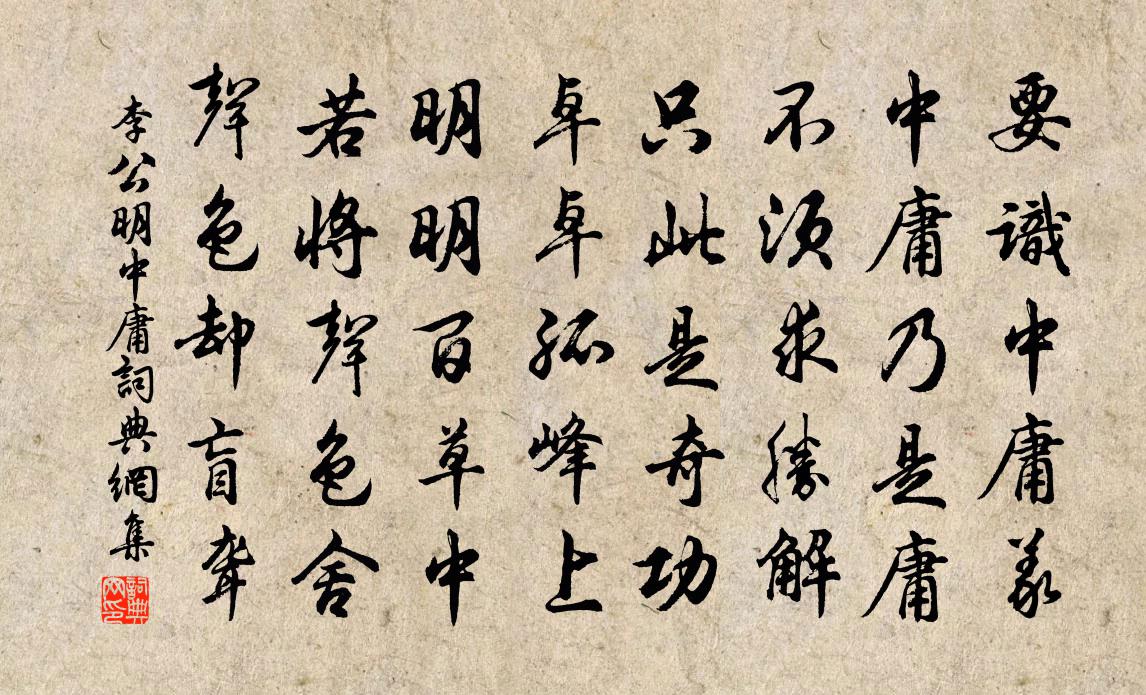 要識中庸義
中庸乃是庸
不須求勝解
只此是奇功
卓卓孤峰上
明明百草中
若將聲色舍
聲色却盲聾
李公明中庸詞典網集
詞典網印